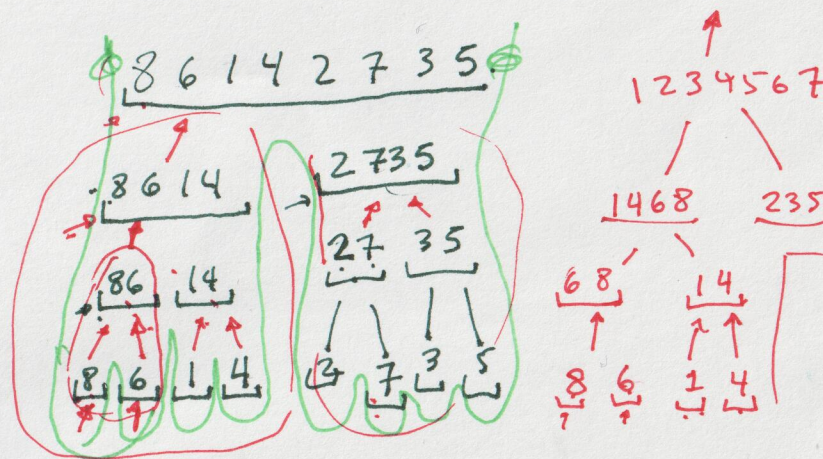 8 6 1 4 2 7 3 5
8 6 1 4
2 7 3 5
8 6
1 4
2 7
3 5
8
6
1
4
2
7
3
5
1 2 3 4 5 6 7
1 4 6 8
2 3 5
6 8
1 4
8
6
1
4